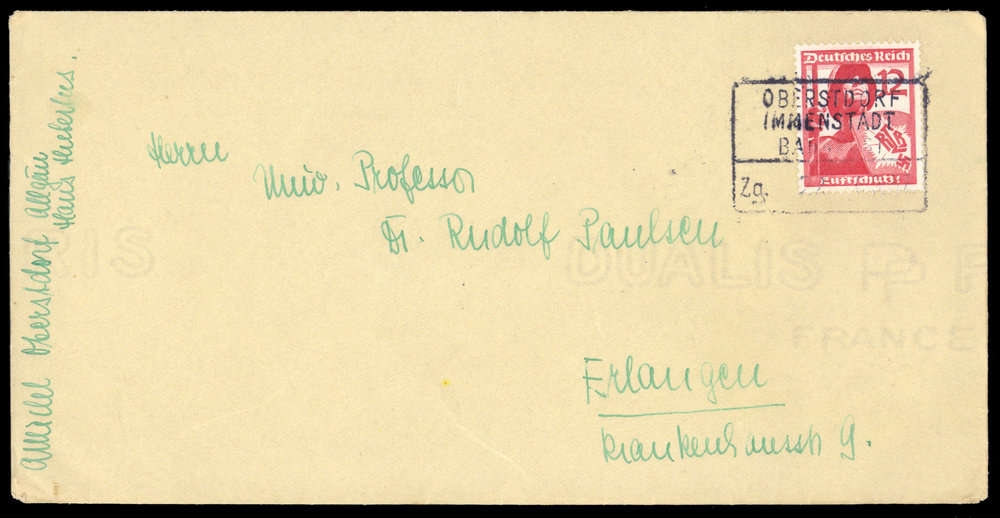 Deutsches Reich
12
RLB
Luftschutz!
OBERSTDORF
IMMENSTADT
BAD
Zg.
Herrn
Univ. Professor
Dr. Rudolf Paulsen
Erlangen
Krankenhausstr 9.
Oberstdorf Allgäu
Haus
DUALIS
FRANCE